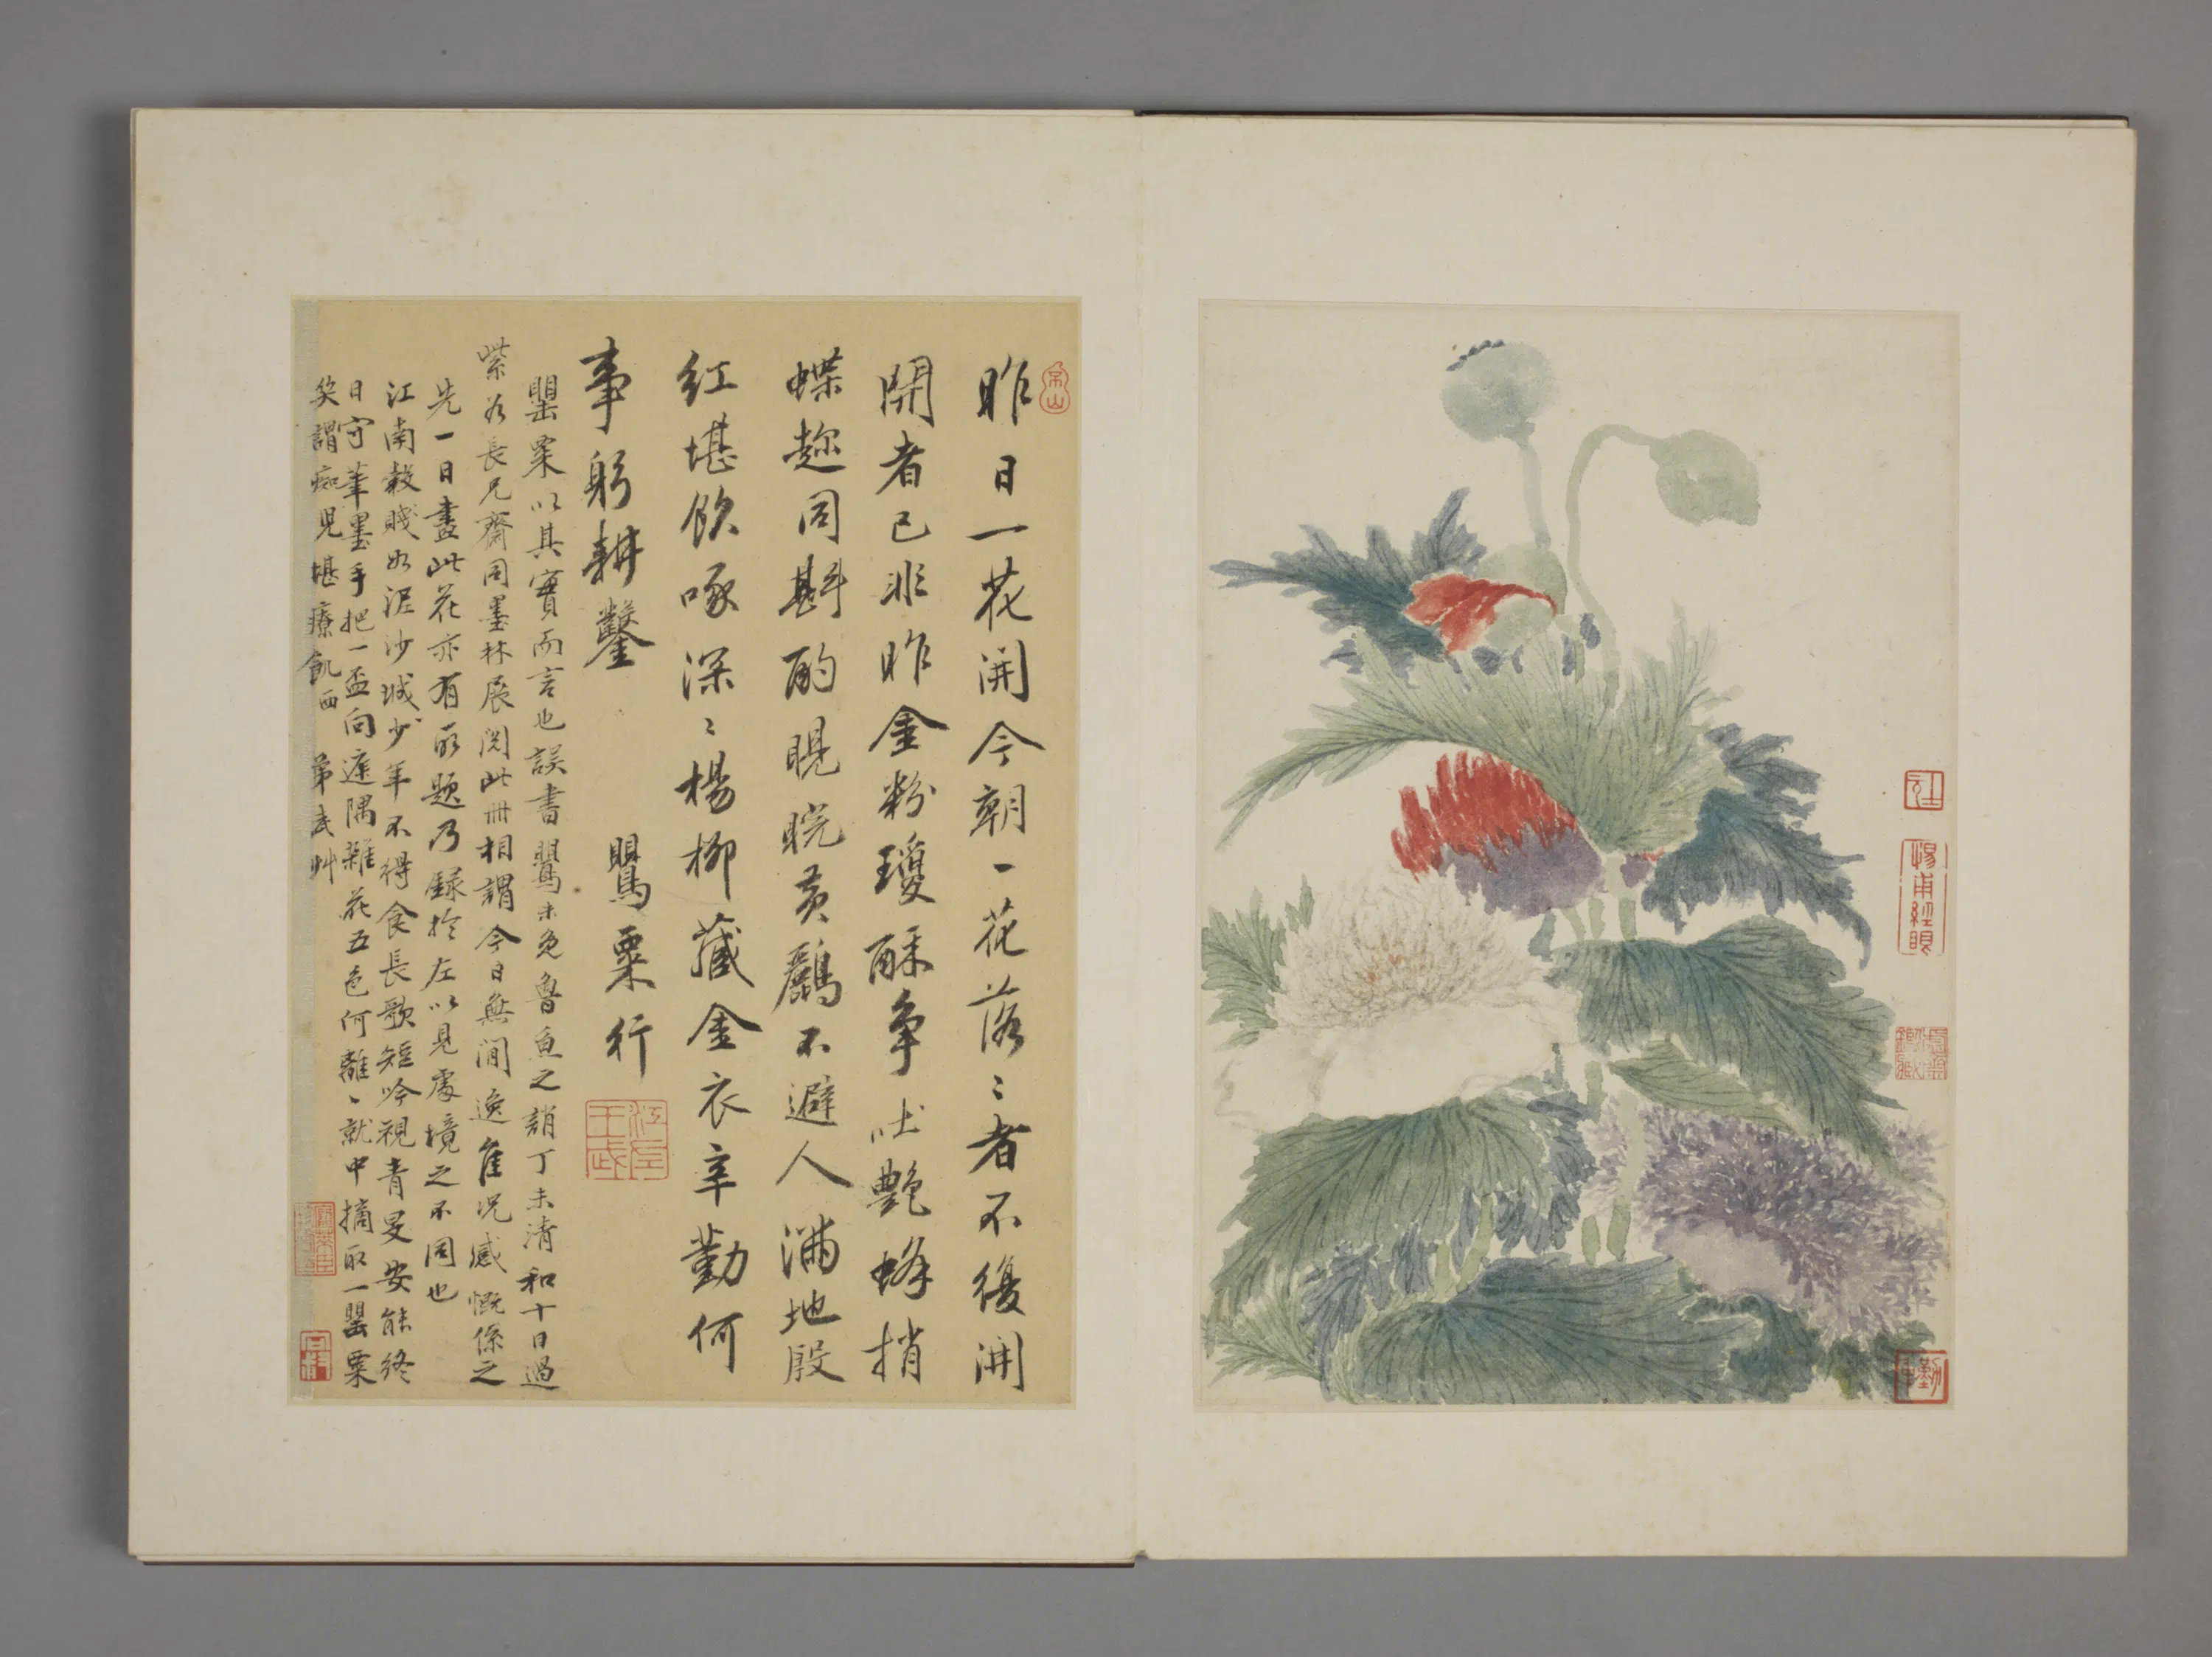 昨日一花開今朝一花落〻者不復開
開者已非昨金粉瓊酥爭吐艷蜂捎
蝶趂同斟酌睍睆黄鸝不避人滿地殷
紅堪飲啄深〻楊柳藏金衣辛勤何
事躬耕鑿
鸎粟行
罌粟以其實而言也誤書鸎未免魯魚之誚丁未清和十日過
紫岩長兄齋同墨林展閱此冊相謂今日無閒逸隹况感慨係之
先一日畫此花亦有所題乃録於左以見處境之不同也
江南穀賤如泥沙城少年不得食長歌短吟視青旻安能終
日守筆墨手把一盃向遮隅雜花五色何離〻就中摘取一罌粟
笑謂痴兒堪療飢西 弟武艸
江左
王武
惕甫經眼
勤